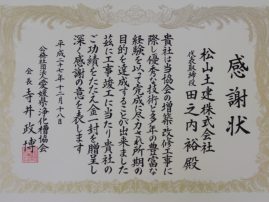 感謝状
松山土建株式会社
代表取締役 田之内 裕 殿
貴社は当協会の増築改修工事に
際し優秀な技術と多年の豊富な
経験を以って完成に尽力され所期の
目的を達成することが出来ました
茲に工事竣工に当たり貴社の
ご功績をたたえ金一封を贈呈し
深く感謝の意を表します
平成二十七年十二月十八日
公益社団法人愛媛県浄化槽協会
会長 寺井政博